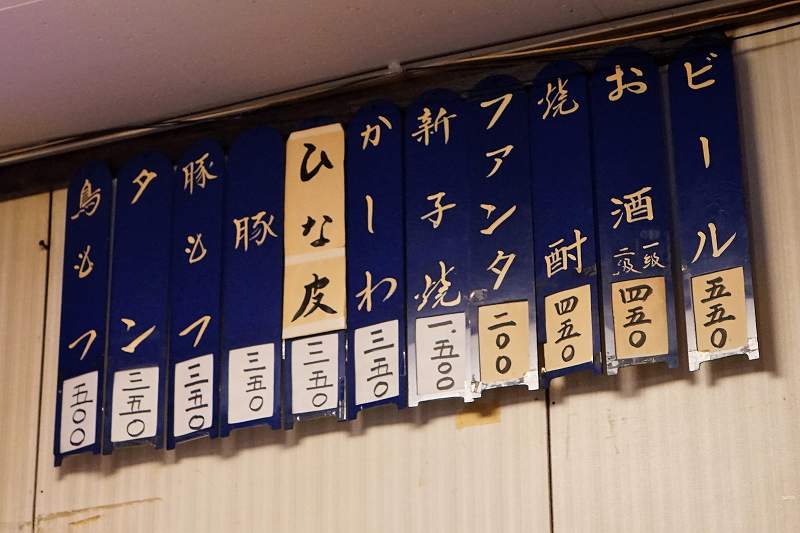 ビール
五五〇
お酒
一級
二級
四五〇
焼酎
四五〇
ファンタ
二〇〇
新子焼
一、五〇〇
かしわ
三五〇
ひな皮
三五〇
豚
三五〇
豚もつ
三五〇
タン
三五〇
鳥もつ
五〇〇